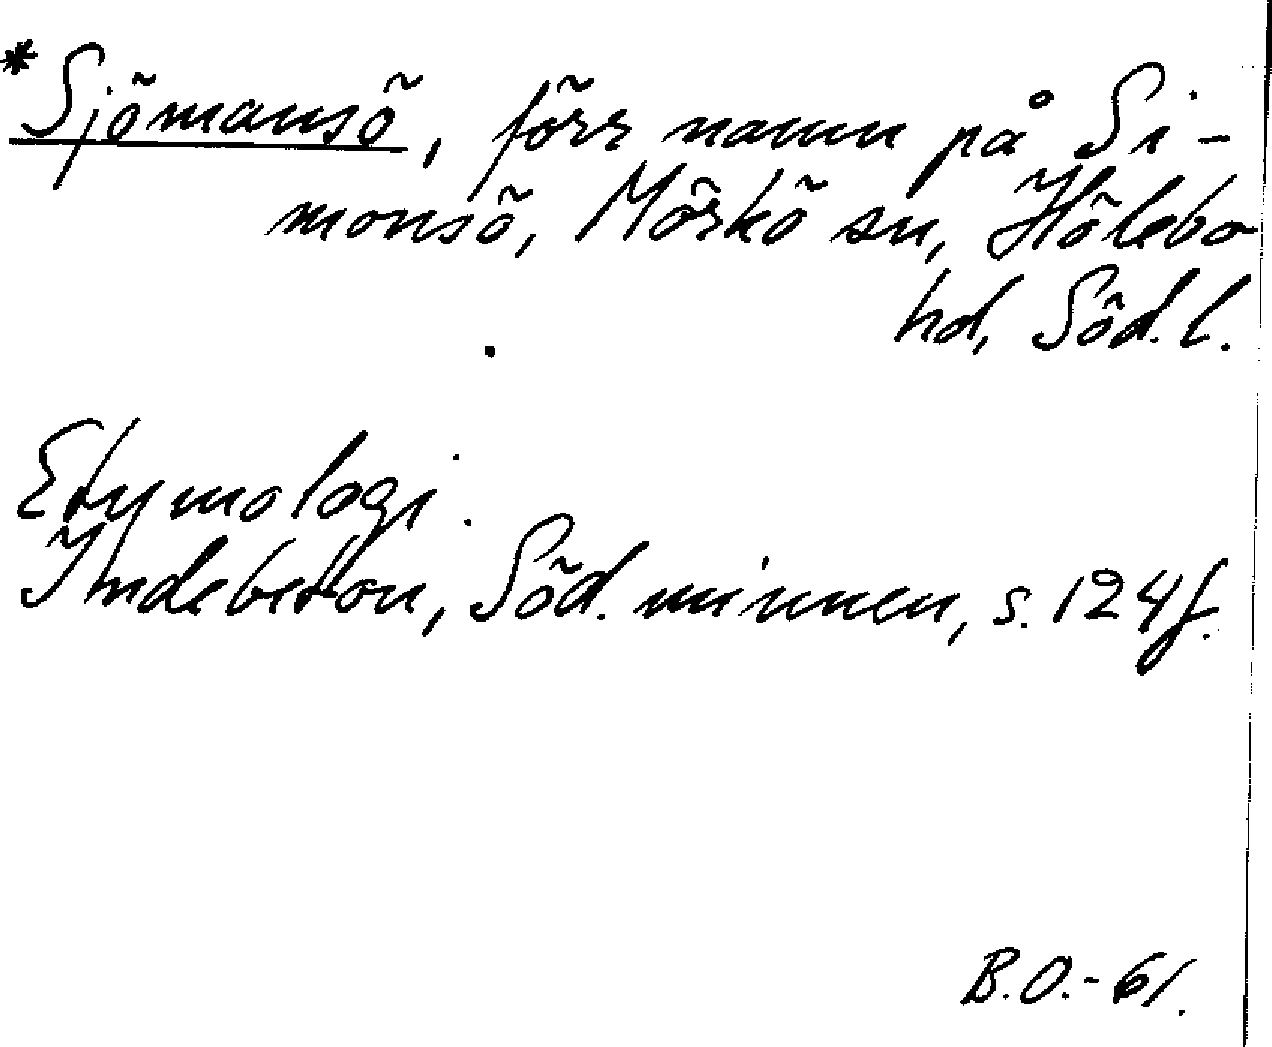 *Sjömansö, förr namn på Si-
monsö, Mörkö sn, Hölebo
hd, Söd. l.
Etymologi.
Indebetou, Söd. minnen, s. 124 f.
B.O.-61.